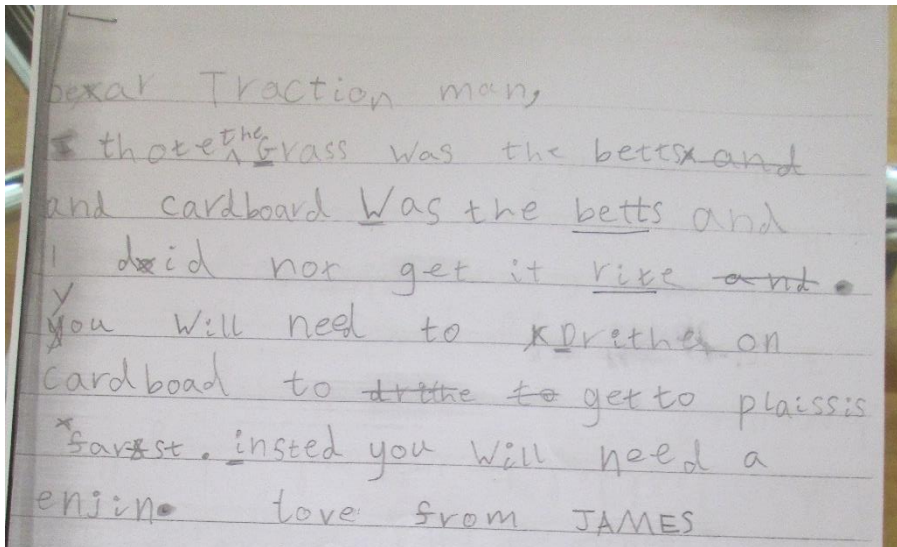 bexar Traction man,
I thote the Grass was the betts and
and cardboard Was the betts and
I did nor get it rite and.
You will need to Drithe on
cardboad to drithe to get to plaissis
farst. insted you will need a
enjin. love from JAMES